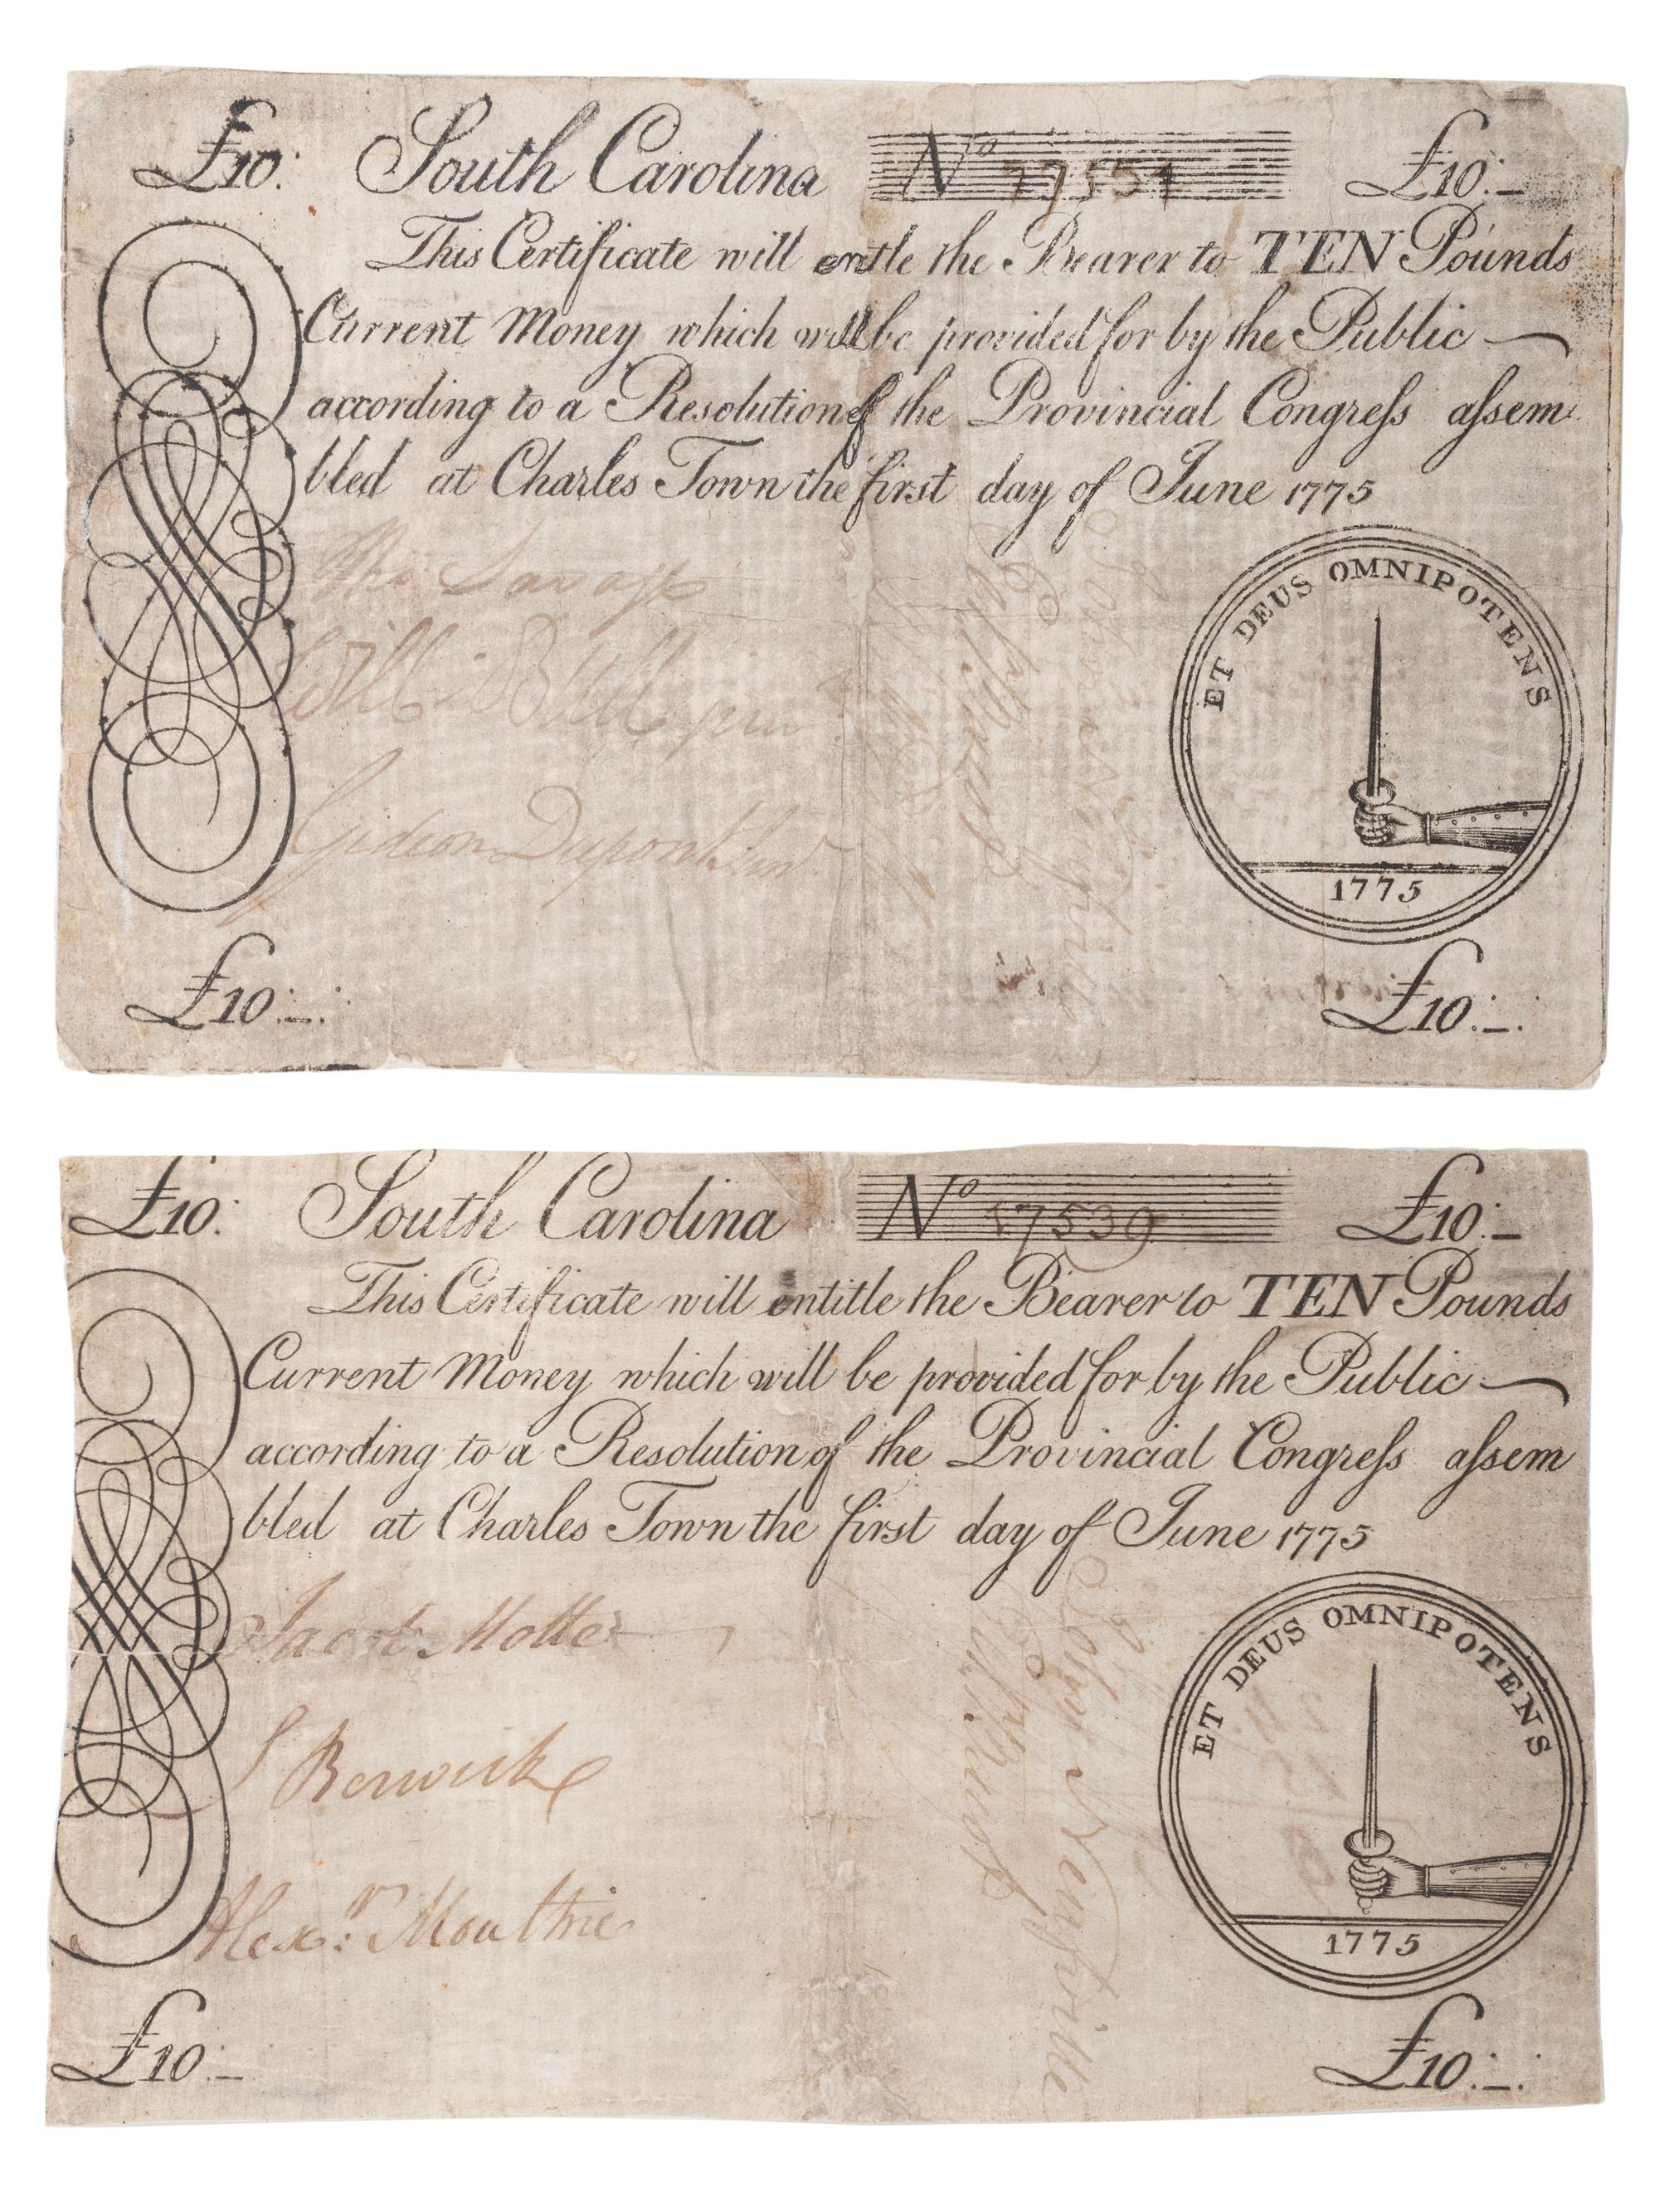 £10: South Carolina Nº £10:–
This Certificate will entle the Bearer to TEN Pounds
Current Money which will be provided for by the Public
according to a Resolution of the Provincial Congreſs aſsem
bled at Charles Town the first day of June 1775
Tho Savage
Will Bull jun
Gideon Dupont Junr
ET DEUS OMNIPOTENS
1775
£10:–: £10:–:
£10: South Carolina Nº 17539 £10:–
This Certificate will entitle the Bearer to TEN Pounds
Current Money which will be provided for by the Public
according to a Resolution of the Provincial Congreſs aſsem
bled at Charles Town the first day of June 1775
Jacob Motte
S Berwick
Alexr: Moultrie
ET DEUS OMNIPOTENS
1775
£10:– £10:–: